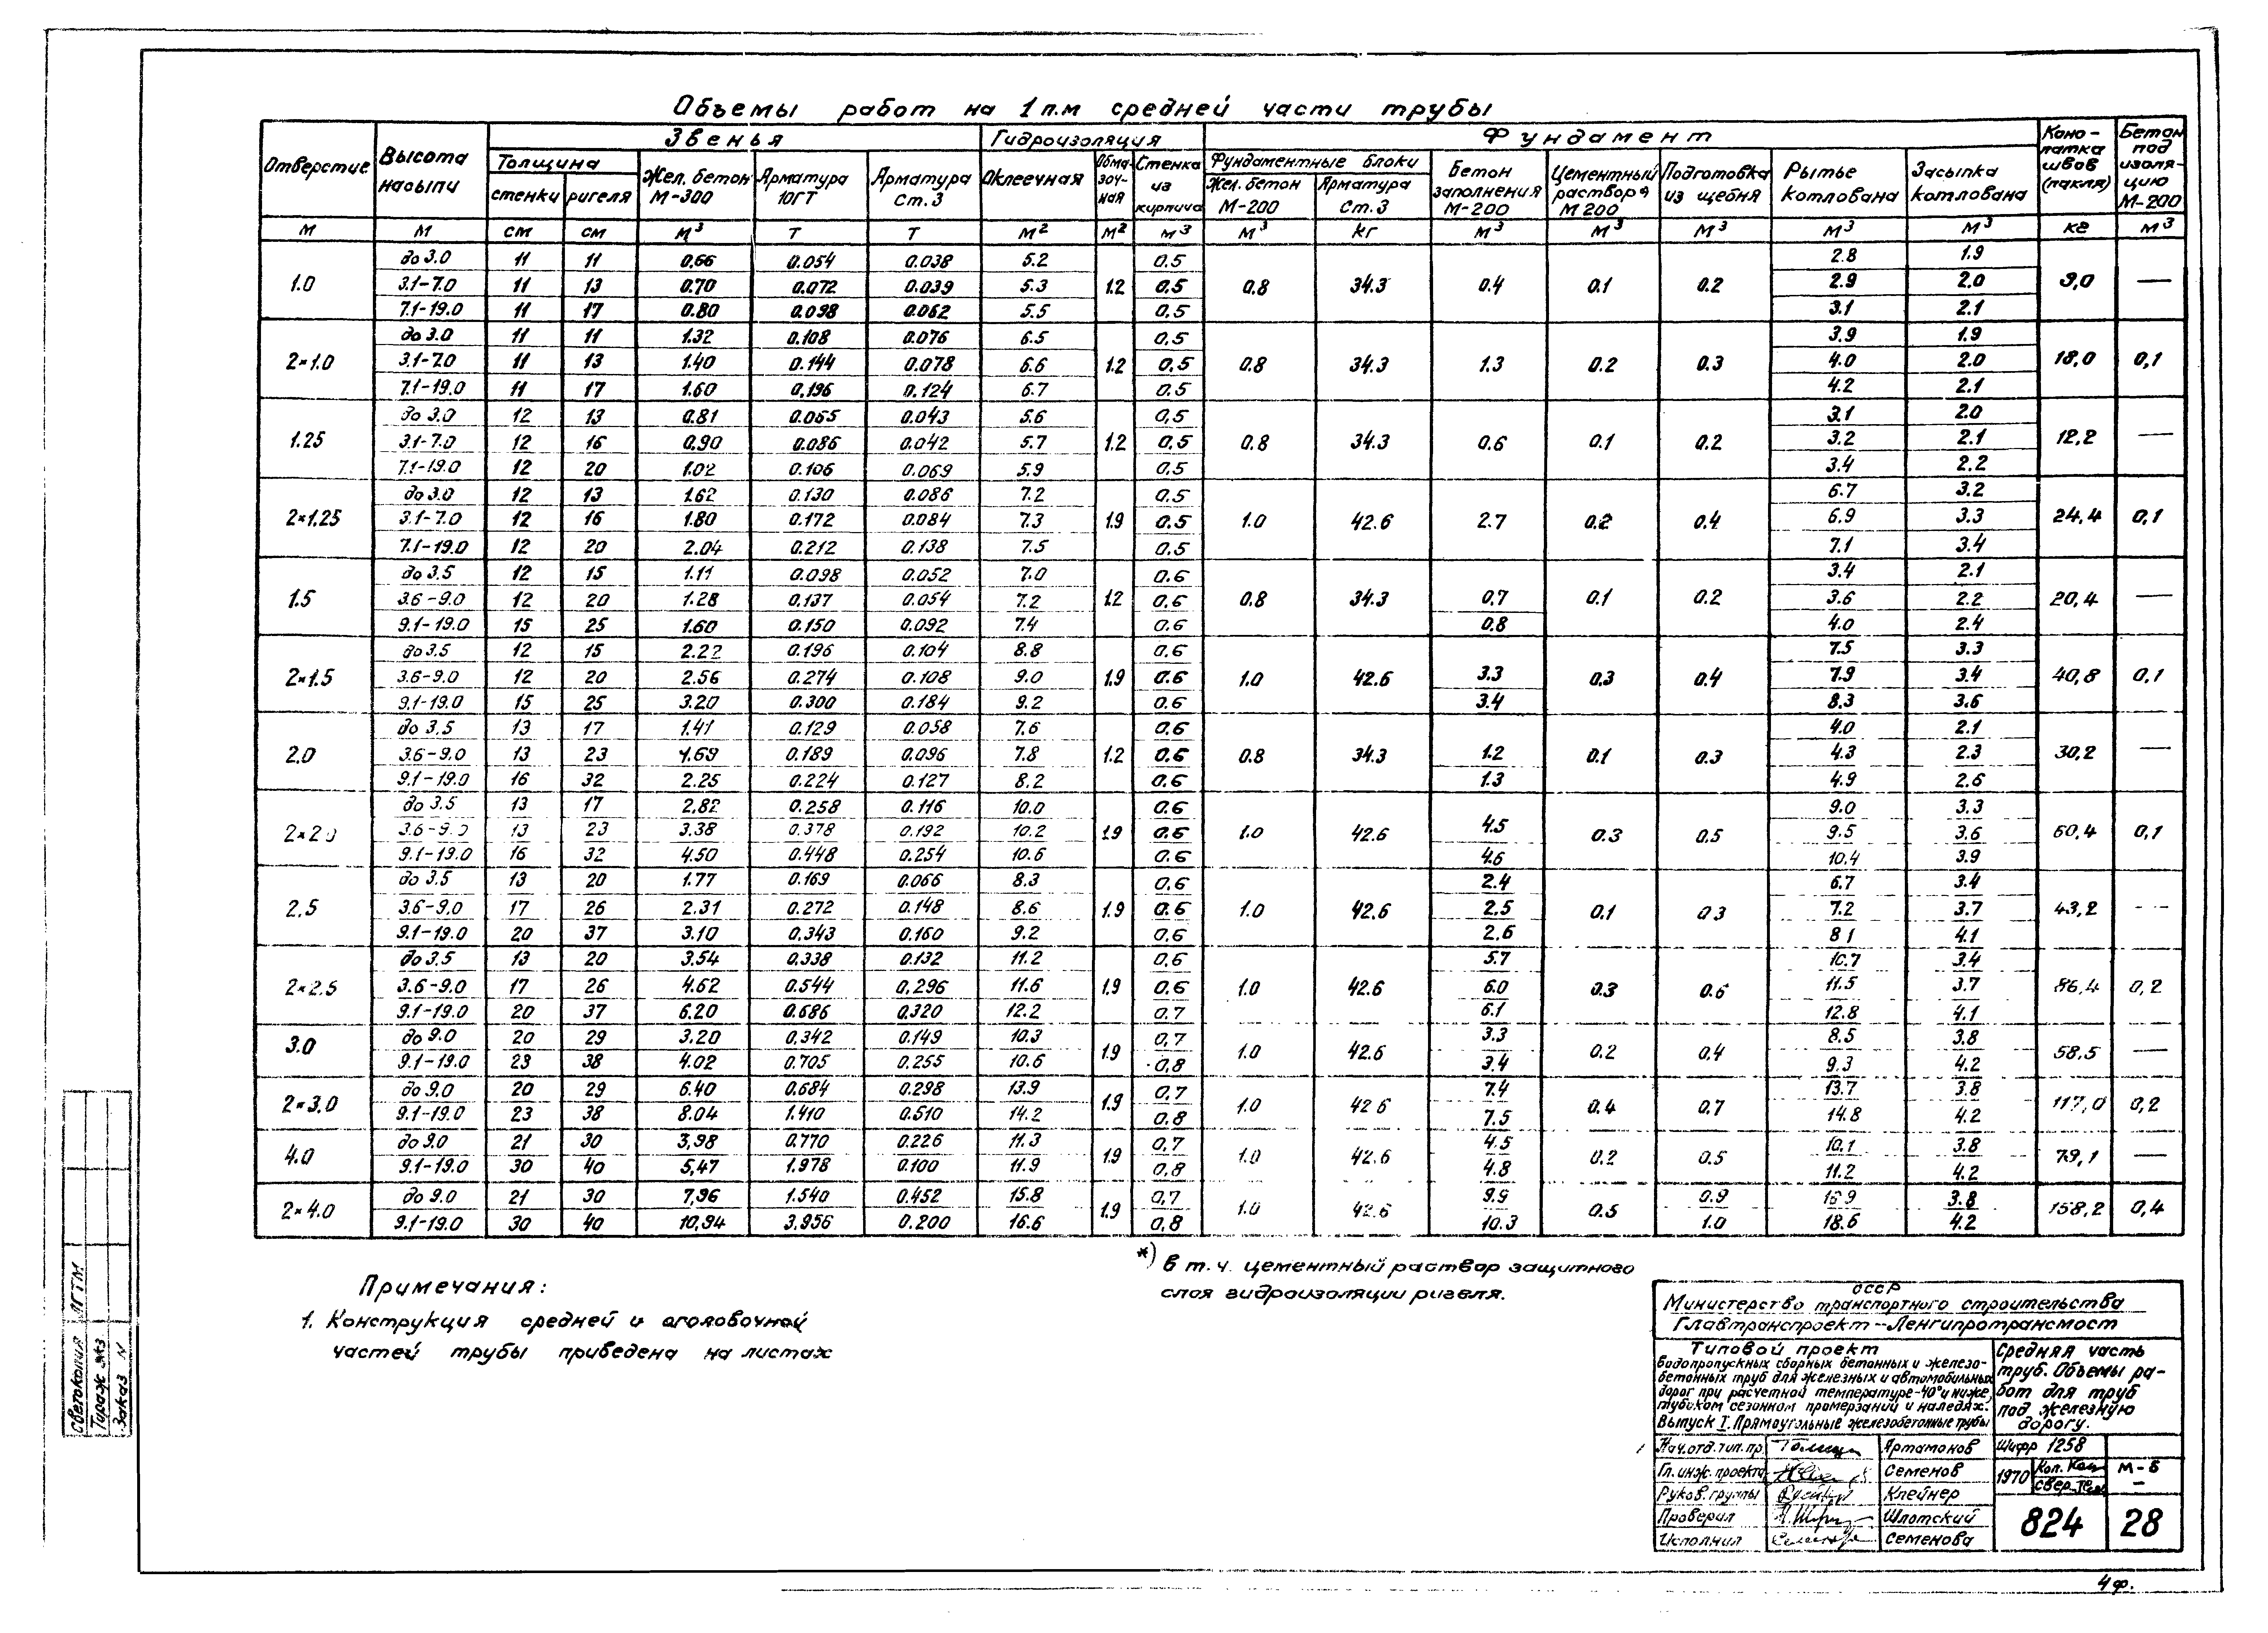 Объемы работ на 1 п.м средней части трубы
Отверстие Высота насыпи Звенья Гидроизоляция Фундамент Коно-патка швов (пакля) Бетон под изоля-цию М-200
Толщина Жел. бетон М-300 Арматура 10ГТ Арматура Ст.3 Оклеечная Обма-зоч-ная Стенка из кирпича Фундаментные блоки Бетон заполнения М-200 Цементный раствор М 200 Подготовка из щебня Рытье котлована Засыпка котлована
стенки ригеля Жел. бетон М-200 Арматура Ст.3
м м см см м³ т т м² м² м³ м³ кг м³ м³ м³ м³ м³ кг м³
1.0 до 3.0 11 11 0,66 0.054 0.038 5.2 1.2 0,5 0.8 34.3 0.4 0.1 0.2 2.8 1.9 9,0 —
3.1-7.0 11 13 0,70 0.072 0.039 5.3 0,5 2.9 2.0
7.1-19.0 11 17 0.80 0.098 0.062 5.5 0,5 3.1 2.1
2×1.0 до 3.0 11 11 1.32 0.108 0.076 6.5 1.2 0,5 0.8 34.3 1.3 0.2 0.3 3.9 1.9 18,0 0,1
3.1-7.0 11 13 1.40 0.144 0.078 6.6 0,5 4.0 2.0
7.1-19.0 11 17 1.60 0,196 0.124 6.7 0.5 4.2 2.1
1.25 до 3.0 12 13 0.81 0.065 0.043 5.6 1.2 0,5 0.8 34.3 0.6 0.1 0.2 3.1 2.0 12,2 —
3.1-7.0 12 16 0.90 0.086 0.042 5.7 0,5 3.2 2.1
7.1-19.0 12 20 1.02 0.106 0.069 5.9 0,5 3.4 2.2
2×1.25 до 3.0 12 13 1.62 0.130 0.086 7.2 1.9 0,5 1.0 42.6 2.7 0.2 0.4 6.7 3.2 24,4 0,1
3.1-7.0 12 16 1.80 0.172 0.084 7.3 0,5 6.9 3.3
7.1-19.0 12 20 2.04 0.212 0.138 7.5 0,5 7.1 3.4
1.5 до 3.5 12 15 1.11 0.098 0.052 7.0 1.2 0.6 0.8 34.3 0.7 0.1 0.2 3.4 2.1 20,4 —
3.6-9.0 12 20 1.28 0.137 0.054 7.2 0,6 3.6 2.2
9.1-19.0 15 25 1.60 0.150 0.092 7.4 0.6 0.8 4.0 2.4
2×1.5 до 3.5 12 15 2.22 0.196 0.104 8.8 1.9 0.6 1.0 42.6 3.3 0,3 0.4 7.5 3.3 40,8 0,1
3.6-9.0 12 20 2.56 0.274 0.108 9.0 0.6 7.9 3.4
9.1-19.0 15 25 3.20 0.300 0.184 9.2 0.6 3.4 8.3 3.6
2.0 до 3.5 13 17 1.41 0.129 0.058 7.6 1.2 0.6 0.8 34.3 1.2 0.1 0.3 4.0 2.1 30,2 —
3.6-9.0 13 23 1.69 0.189 0.096 7.8 0.6 4.3 2.3
9.1-19.0 16 32 2.25 0.224 0.127 8.2 0.6 1.3 4.9 2.6
2×2.0 до 3.5 13 17 2.82 0.258 0.116 10.0 1.9 0.6 1.0 42.6 4.5 0.3 0.5 9.0 3.3 60,4 0,1
3.6-9.0 13 23 3.38 0.378 0.192 10.2 0.6 9.5 3.6
9.1-19.0 16 32 4.50 0.448 0.254 10.6 0.6 4.6 10.4 3.9
2.5 до 3.5 13 20 1.77 0.169 0.066 8.3 1.9 0,6 1.0 42.6 2.4 0.1 0.3 6.7 3.4 43,2 —
3.6-9.0 17 26 2.31 0.272 0.148 8.6 0.6 2.5 7.2 3.7
9.1-19.0 20 37 3.10 0.343 0.160 9.2 0,6 2.6 8.1 4.1
2×2.5 до 3.5 13 20 3.54 0.338 0.132 11.2 1.9 0,6 1.0 42.6 5.7 0.3 0.6 10.7 3.4 86,4 0,2
3.6-9.0 17 26 4.62 0.544 0.296 11.6 0,6 6.0 11.5 3.7
9.1-19.0 20 37 6.20 0.686 0.320 12.2 0.7 6.1 12.8 4.1
3.0 до 9.0 20 29 3.20 0.342 0.149 10.3 1.9 0,7 1.0 42.6 3.3 0.2 0.4 8.5 3.8 58,5 —
9.1-19.0 23 38 4.02 0.705 0.255 10.6 0,8 3.4 9.3 4.2
2×3.0 до 9.0 20 29 6.40 0.684 0.298 13.9 1.9 0,7 1.0 42.6 7.4 0.4 0.7 13.7 3.8 117,0 0,2
9.1-19.0 23 38 8.04 1.410 0.510 14.2 0,8 7.5 14.8 4.2
4.0 до 9.0 21 30 3,98 0.770 0.226 11.3 1.9 0,7 1.0 42.6 4.5 0.2 0.5 10.1 3.8 79,1 —
9.1-19.0 30 40 5,47 1.978 0.100 11.9 0,8 4.8 11.2 4.2
2×4.0 до 9.0 21 30 7,96 1.540 0.452 15.8 1.9 0,7 1.0 42.6 9.9 0.5 0.9 16.9 3.8 158,2 0,4
9.1-19.0 30 40 10,94 3.956 0.200 16.6 0,8 10.3 1.0 18.6 4.2
*) в т.ч. цементный раствор защитного
слоя гидроизоляции ригеля.
Примечания:
1. Конструкция средней и оголовочной
частей трубы приведена на листах
СССР
Министерство транспортного строительства
Главтранспроект-Ленгипротрансмост
Типовой проект
водопропускных сборных бетонных и железо-
бетонных труб для железных и автомобильных
дорог при расчетной температуре -40° и ниже,
глубоком сезонном промерзании и наледях.
Выпуск I. Прямоугольные железобетонные трубы
Средняя часть
труб. Объемы ра-
бот для труб
под железную
дорогу.
Нач. отд. тип. пр. Артамонов
Гл. инж. проекта Семенов
Руков. группы Клейнер
Проверил Шлотский
Исполнил Семенова
Шифр 1258
1970 Коп. свер.
824 28
4 ф.
Светокопия ЛГТМ
Тираж экз
Заказ N